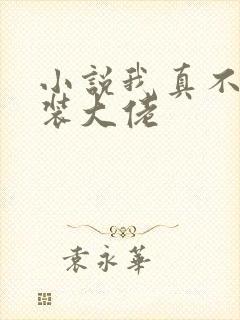 小説我真不
裝大佬
袁永華